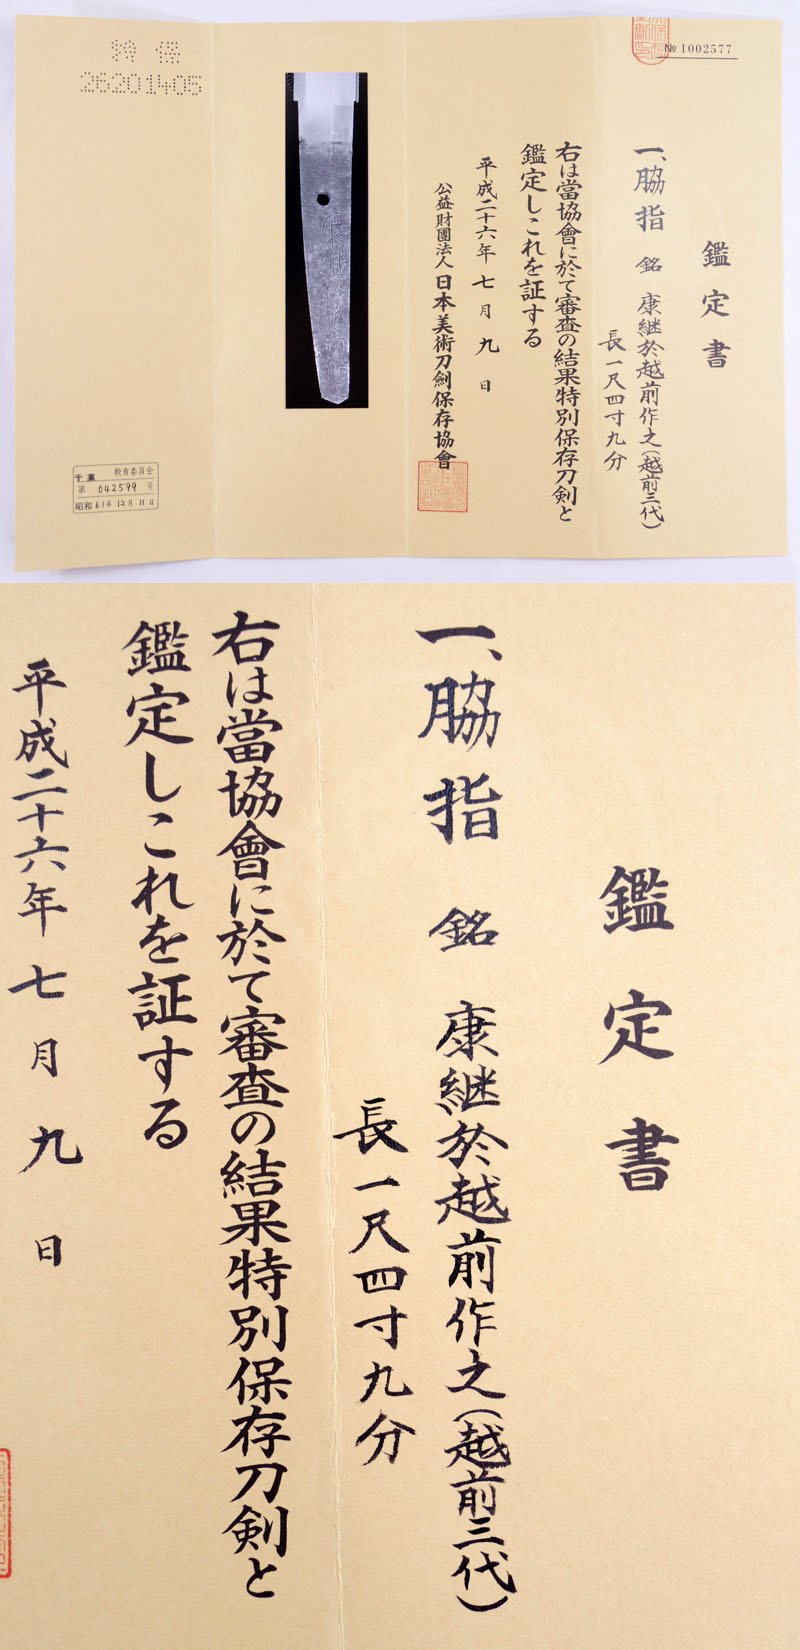 № 1002577
鑑定書
一、脇指 銘 康継於越前作之(越前三代)
長一尺四寸九分
右は當協會に於て審査の結果特別保存刀剣と
鑑定しこれを証する
平成二十六年 七月九日
公益財團法人 日本美術刀劍保存協會
特保
26201405
千葉 教育委員会
第 042599 号
昭和61年12月11日
鑑定書
一、脇指 銘 康継於越前作之(越前三代)
長一尺四寸九分
右は當協會に於て審査の結果特別保存刀剣と
鑑定しこれを証する
平成二十六年 七月九日